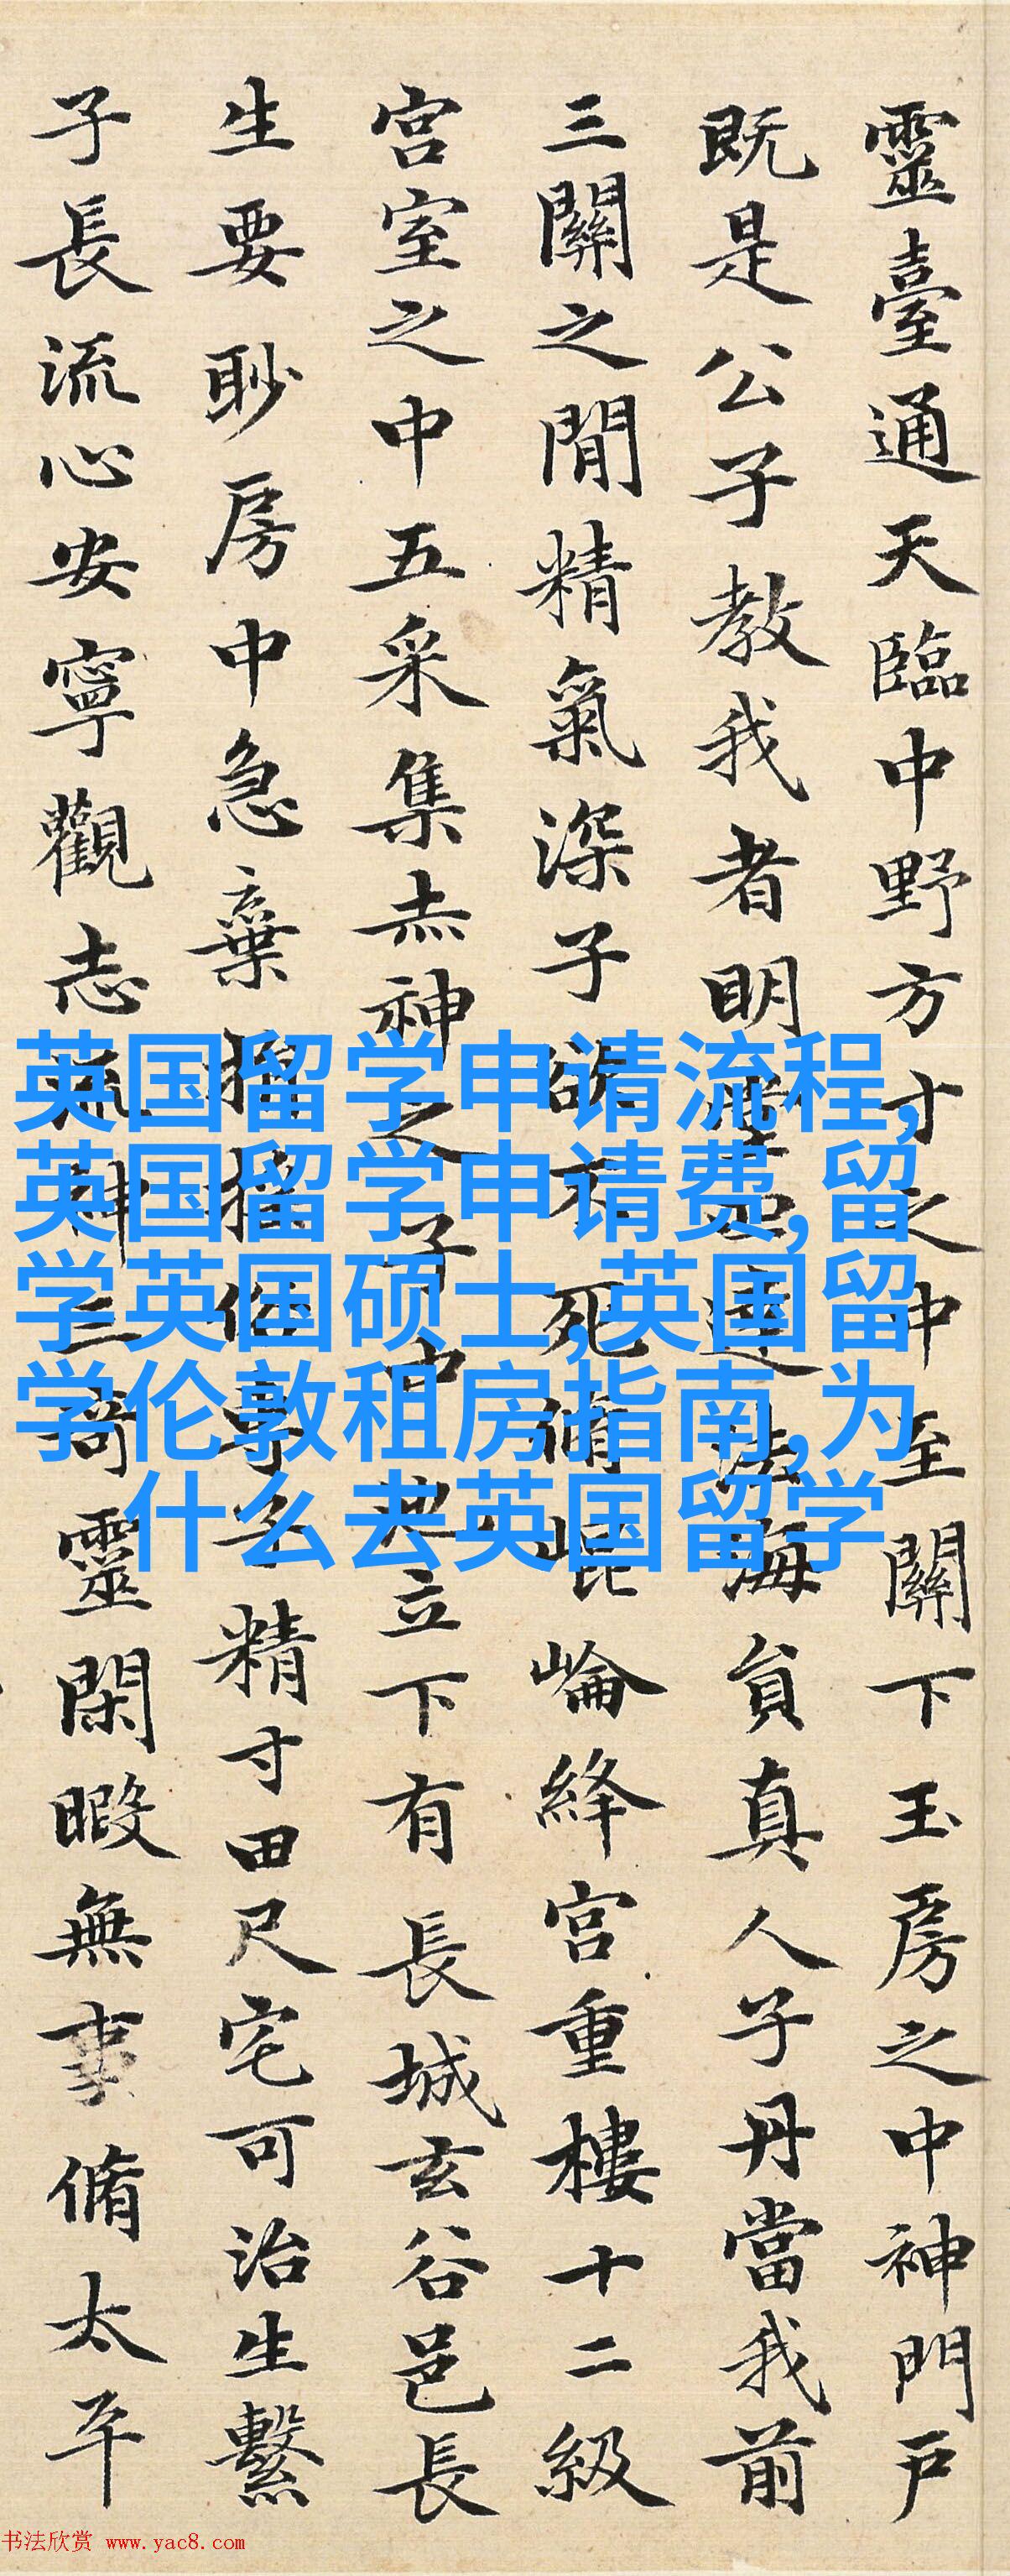 靈臺通天臨中野方寸之中至關下玉房之中神門戶
既是公子教我者明堂四達法海員真人子丹當我前
三關之閒精氣深子欲不死脩崐崘絳宮重樓十二級
宮室之中五采集赤神之子中池立下有長城玄谷邑長
生要眇房中急棄捐搖俗專子精寸田尺宅可治生繫
子長流心安寧觀志流神三奇靈閑暇無事脩太平
英国留学申请流程,
英国留学申请费,留
学英国硕士,英国留
学伦敦租房指南,为
什么去英国留学
书法欣赏 www.yac8.com